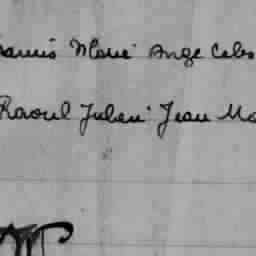 Marie Ange Celes
Raoul Julien Jean Ma